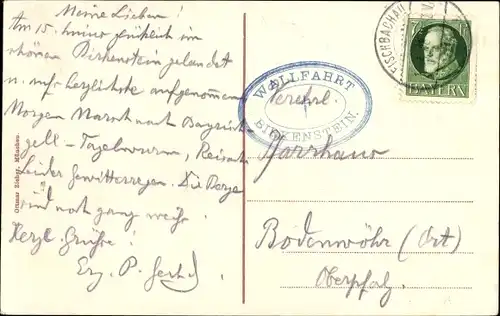 Meine Lieben!
Am 15. immer glücklich im
schönen Birkenstein gelandet
u. aufs herzlichste aufgenommen
Morgen Marsch nach Bayrisch-
zell - Tagelwurm,
Leider Gewitterregen. Die Berge
sind noch ganz weiß.
Herzl. Grüße!
P.
Ottmar Zieher, München.
WALLFAHRT
BIRKENSTEIN.
FISCHBACHAU
BAYERN
Verehrl.
Pfarrhaus
Bodenwöhr (Ort)
Oberpfalz.